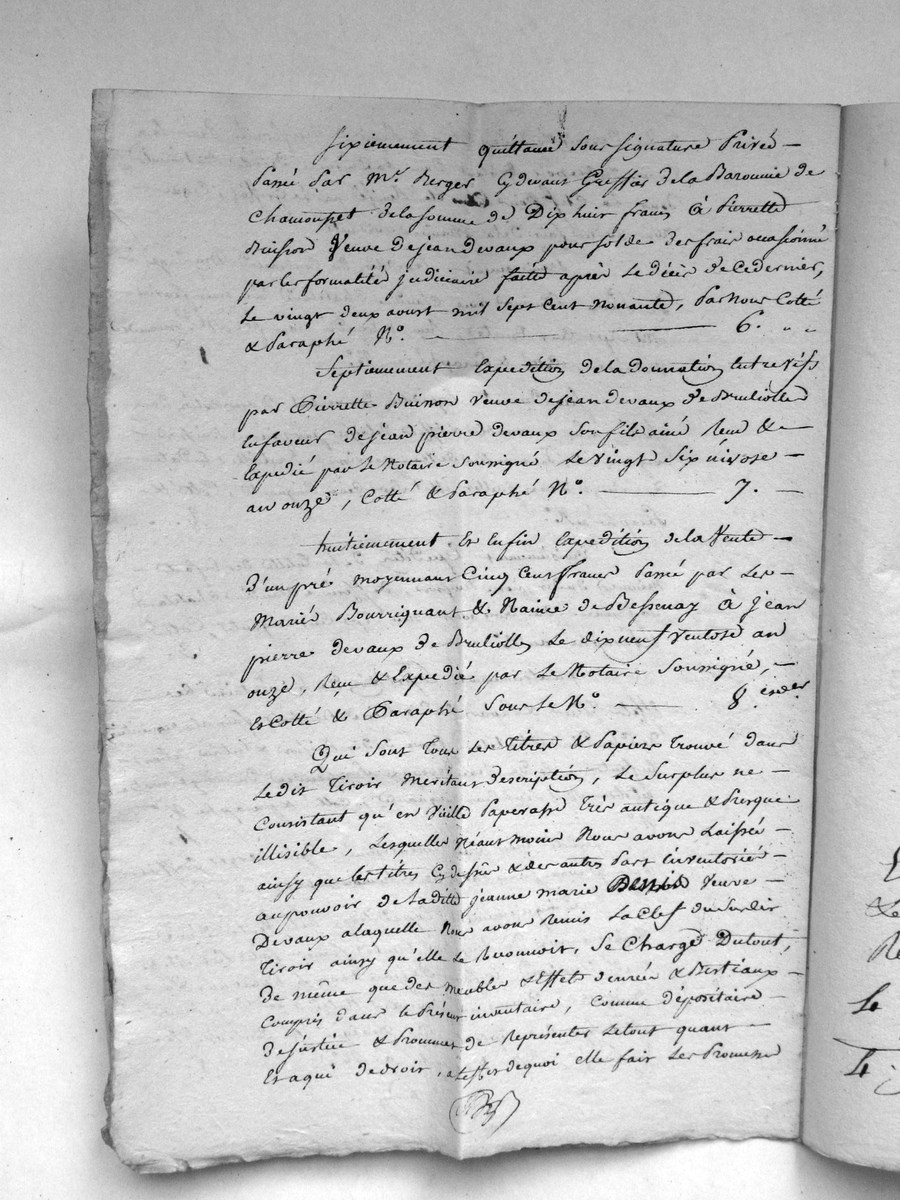 Sixiemement quittance sous signature Privée —
Passé par Mr. Berger Cydevant Greffier de la Baronnie de
Chamousset de la somme de Dix huit francs à Pierrette
Buisson Veuve de jean devaux pour solde des frais occasionné
par les formalité judiciaire faite après le décès de ce dernier,
Le vingt deux aoust mil sept cent nonante, Par Nous Cotté
& Paraphé No. — — 6. „ „
Septiemement Expedition de la donnation Entrevifs
par Pierrette Buisson veuve de jean devaux de Brulliolle
En faveur de jean pierre devaux son fils ainé Reçue & —
Expedié par le Notaire soussigné Le vingt six nivose —
an onze, Cotté & Paraphé No. — 7. —
huitiemement Et Enfin Expedition de la Vente —
D'un pré moyennant Cinq Cent francs Passé par Les —
Mariés Bourriquant & de Bessenay à jean
pierre devaux de Brulliolle Le dix neuf Ventose an
onze, Reçue & Expedié par Le Notaire Soussigné, —
Et Cotté & Paraphé Sous Le No. — 8. &
Qui Sont Tous Les Titres & Papiers Trouvé dans
Le dit Tiroir Meritant Description, Le Surplus ne —
Consistant qu'en Vieille Paperasse Très antique & Presque
illisible, Lesquelles Néantmoins Nous avons Laissée
ainsy que les titres Cy dessus & des autres Part inventoriés —
au pouvoir de Ladite jeanne marie Veuve —
Devaux a laquelle Nous avons Remis La Clef du Susdit
Tiroir ainsy qu'elle Le Reconnoit, Se Charge Dutout,
De même que des meubles & Effets denrée & Bestiaux —
Compris dans le Présent inventaire, Comme dépositaire —
De justice & Promet de Représenter Le tout quant —
Et a qui de droit, a L'effet de quoi elle fait Les Promesse